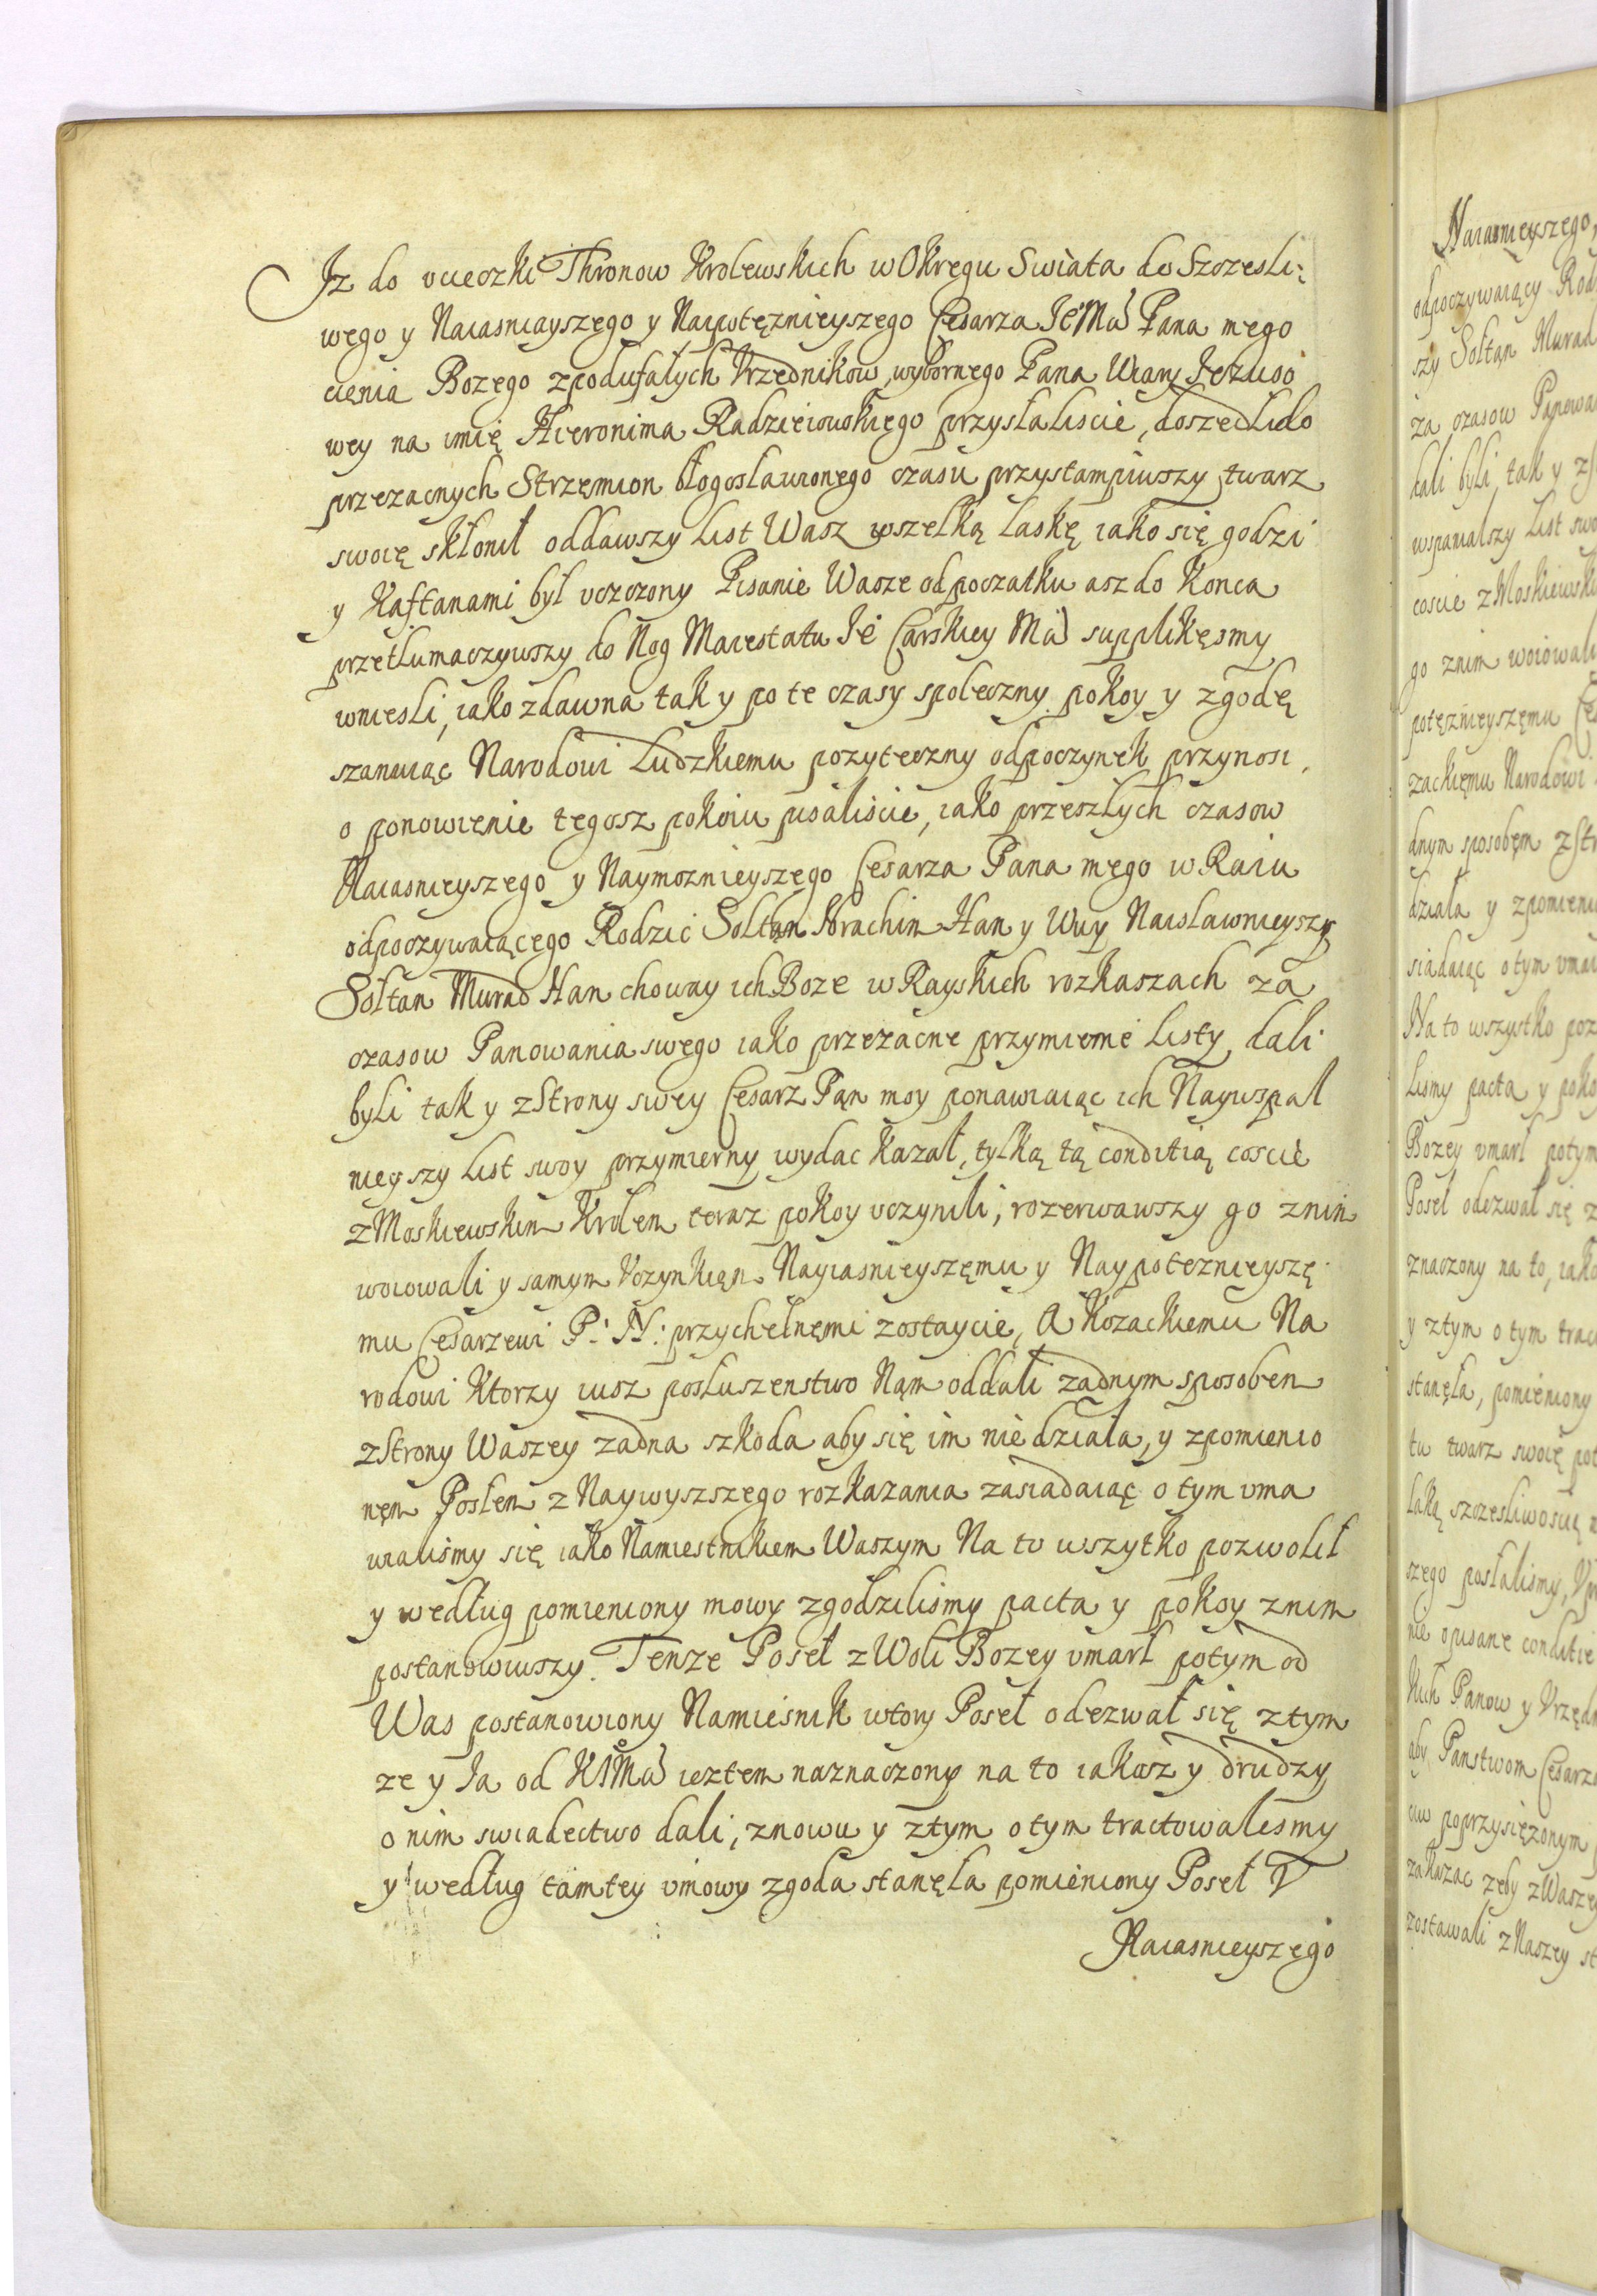 Jz do ucieczki Thronow Krolewskich w Okręgu Swiata do Szczesli-
wego y Naiasnieyszego y Naipotęznieyszego Cesarza JeMći Pana mego
cienia Bozego z podufałych Vrzędnikow, wybornego Pana Wiary Jezuso
wey na imię Hieronima Radzieiowskiego przysłaliscie, doszedł do
przezacnych Strzęmion błogosławionego czasu przystampiwszy twarz
swoię skłonił oddawszy List Wasz wszelką łaskę iako się godzi
y Kaftanami był uczczony Pisanie Wasze od początku asz do Konca
przetłumaczywszy do Nog Maiestatu Jė Carskiey Mći supplikęsmy
wniesli, iako zdawna tak y po te czasy społeczny pokoy y zgodę
szanuiąc Narodowi Ludzkiemu pozyteczny odpoczynek przynosi,
o ponowienie tegosz pokoiu pisaliscie, iako przeszłych czasow
Naiasnieyszego y Naymoznieyszego Cesarza Pana mego w Raiu
odpoczywaiącego Rodzic Sołtan Ibrachim Han y Wuy Naisławnieyszy
Sołtan Murad Han choway ich Boze w Rayskich rozkaszach za
czasow Panowania swego iako przezacne przymierne Listy dali
byli tak y z Strony swey Cesarz Pąn moy ponawiaiąc ich Naywspal
nieyszy List swoy przymierny wydac kazał, tylką tą conditią coscie
z Moskiewskim Krolem teraz pokoy uczynili, rozerwawszy go z nim
woiowali y samym Vczynkiem Nayiasnieyszęmu y Naypotęznieyszę
mu Cesarzewi P: N: przychelnęmi zostaycie, A Kozackiemu Na
rodowi Ktorzy iusz posłuszenstwo Nąm oddali zadnym sposobem
z Strony Waszey zadna szkoda aby się im nie działa, y z pomienio
nęm Posłem z Naywyszszego rozkazania zasiadaiąc o tym uma
wialismy się iako Namiestnikiem Waszym Na to wszytko pozwolił
y według pomieniony mowy zgodzilismy pacta y pokoy z nim
postanowiwszy. Tenze Poseł z Woli Bozey umarł potym od
Was postanowiony Namiesnik wtory Poseł odezwał się z tym
ze y Ja od KJMći ieztem naznaczony na to iakosz y drudzy
o nim swiadectwo dali, znowu y z tym o tym tractowalesmy
y według tamtey umowy zgoda stanęła pomieniony Poseł V
Naiasnieyszego
Naiasnieyszego,
odpoczywaiący Rod
szy Sołtan Murad
za czasow Panowa
dali byli, tak y z
wspanialszy List swo
coscie z Moskiewski
go z nim woiowali
potęznieyszęmu Ce
zackięmu Narodowi
dnym sposobęm z Str
działa y z pomieni
siadaiąc o tym uma
Na to wszystko poz
lismy pacta y poko
Bozey umarł potym
Poseł odezwał się z
znaczony na to, iako
y z tym o tym trac
stanęła, pomieniony
tu twarz swoię pot
laką szczesliwoscią
szego posłalismy,
nie opisane conditie
kich Panow y Vrzęd
aby Panstwom Cesarz
ciw poprzysięzonym
zakazac zeby z Waszey
zostawali z Naszey st